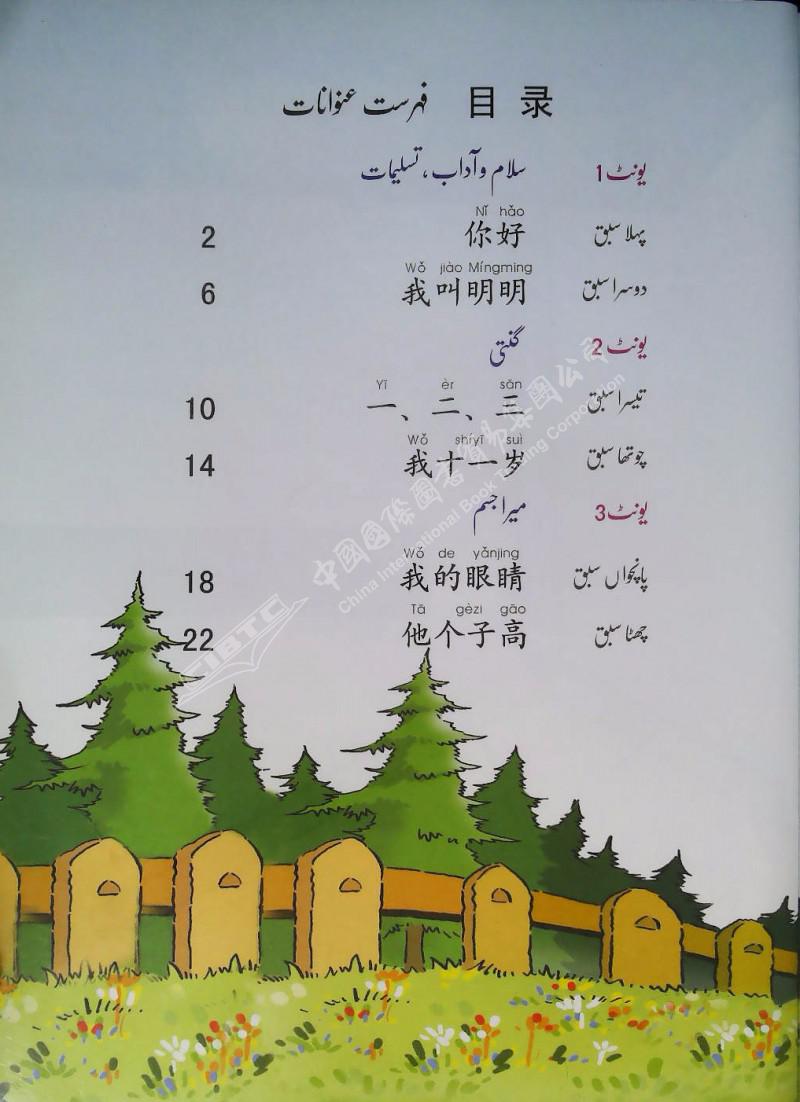 فہرست عنوانات 目录
یونٹ 1 سلام و آداب، تسلیمات
Nǐ hǎo
پہلا سبق 你好 2
Wǒ jiào Míngming
دوسرا سبق 我叫明明 6
یونٹ 2 گنتی
Yī èr sān
تیسرا سبق 一、二、三 10
Wǒ shíyī suì
چوتھا سبق 我十一岁 14
یونٹ 3 میرا جسم
Wǒ de yǎnjing
پانچواں سبق 我的眼睛 18
Tā gèzi gāo
چھٹا سبق 他个子高 22
中国国际图书贸易集团公司
China International Book Trading Corporation
CIBTC